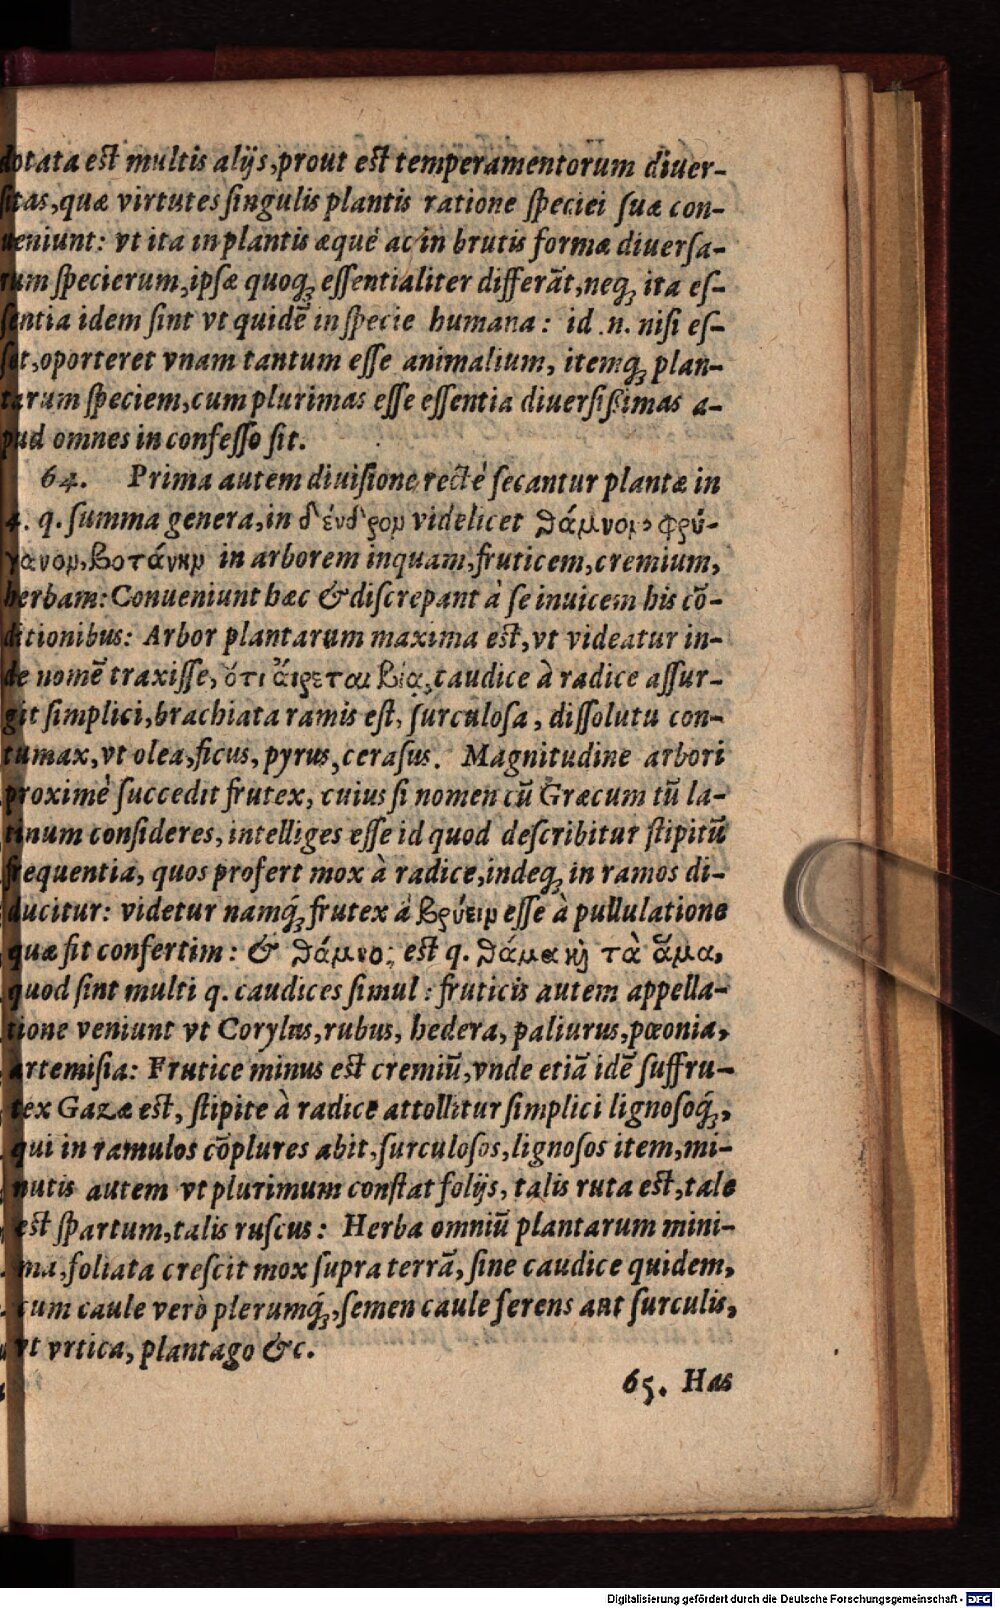 dotata est multis alijs, prout est temperamentorum diuer-
sitas, quæ virtutes singulis plantis ratione speciei suæ con-
ueniunt: vt ita in plantis æquè ac in brutis formæ diuersa-
rum specierum, ipsæ quoq; essentialiter differāt, neq; ita es-
sentia idem sint vt quidē in specie humana: id .n. nisi es-
set, oporteret vnam tantum esse animalium, itemq; plan-
tarum speciem, cum plurimas esse essentia diuersißimas a-
pud omnes in confesso sit.
64. Prima autem diuisione rectè secantur plantæ in
4. q. summa genera, in δένδρον videlicet θάμνον, φρύ-
γανον, βοτάνην in arborem inquam, fruticem, cremium,
herbam: Conueniunt hæc & discrepant à se inuicem his cō-
ditionibus: Arbor plantarum maxima est, vt videatur in-
de nomē traxisse, ὅτι ἄιρεται βίᾳ, caudice à radice assur-
git simplici, brachiata ramis est, surculosa, dissolutu con-
tumax, vt olea, ficus, pyrus, cerasus. Magnitudine arbori
proximè succedit frutex, cuius si nomen cū Græcum tū la-
tinum consideres, intelliges esse id quod describitur stipitū
frequentia, quos profert mox à radice, indeq; in ramos di-
ducitur: videtur namq́; frutex à βρύειν esse à pullulatione
quæ fit confertim: & θάμνος est q. θάμα κὶ τὰ ἅμα,
quod sint multi q. caudices simul: fruticis autem appella-
tione veniunt vt Corylus, rubus, hedera, paliurus, pœonia,
artemisia: Frutice minus est cremiū, vnde etiā idē suffru-
tex Gazæ est, stipite à radice attollitur simplici lignosoq́;,
qui in ramulos cōplures abit, surculosos, lignosos item, mi-
nutis autem vt plurimum constat folijs, talis ruta est, tale
est spartum, talis ruscus: Herba omniū plantarum mini-
ma, foliata crescit mox supra terrā, sine caudice quidem,
cum caule verò plerumq́;, semen caule ferens aut surculis,
vt vrtica, plantago &c.
65. Has
Digitalisierung gefördert durch die Deutsche Forschungsgemeinschaft - DFG